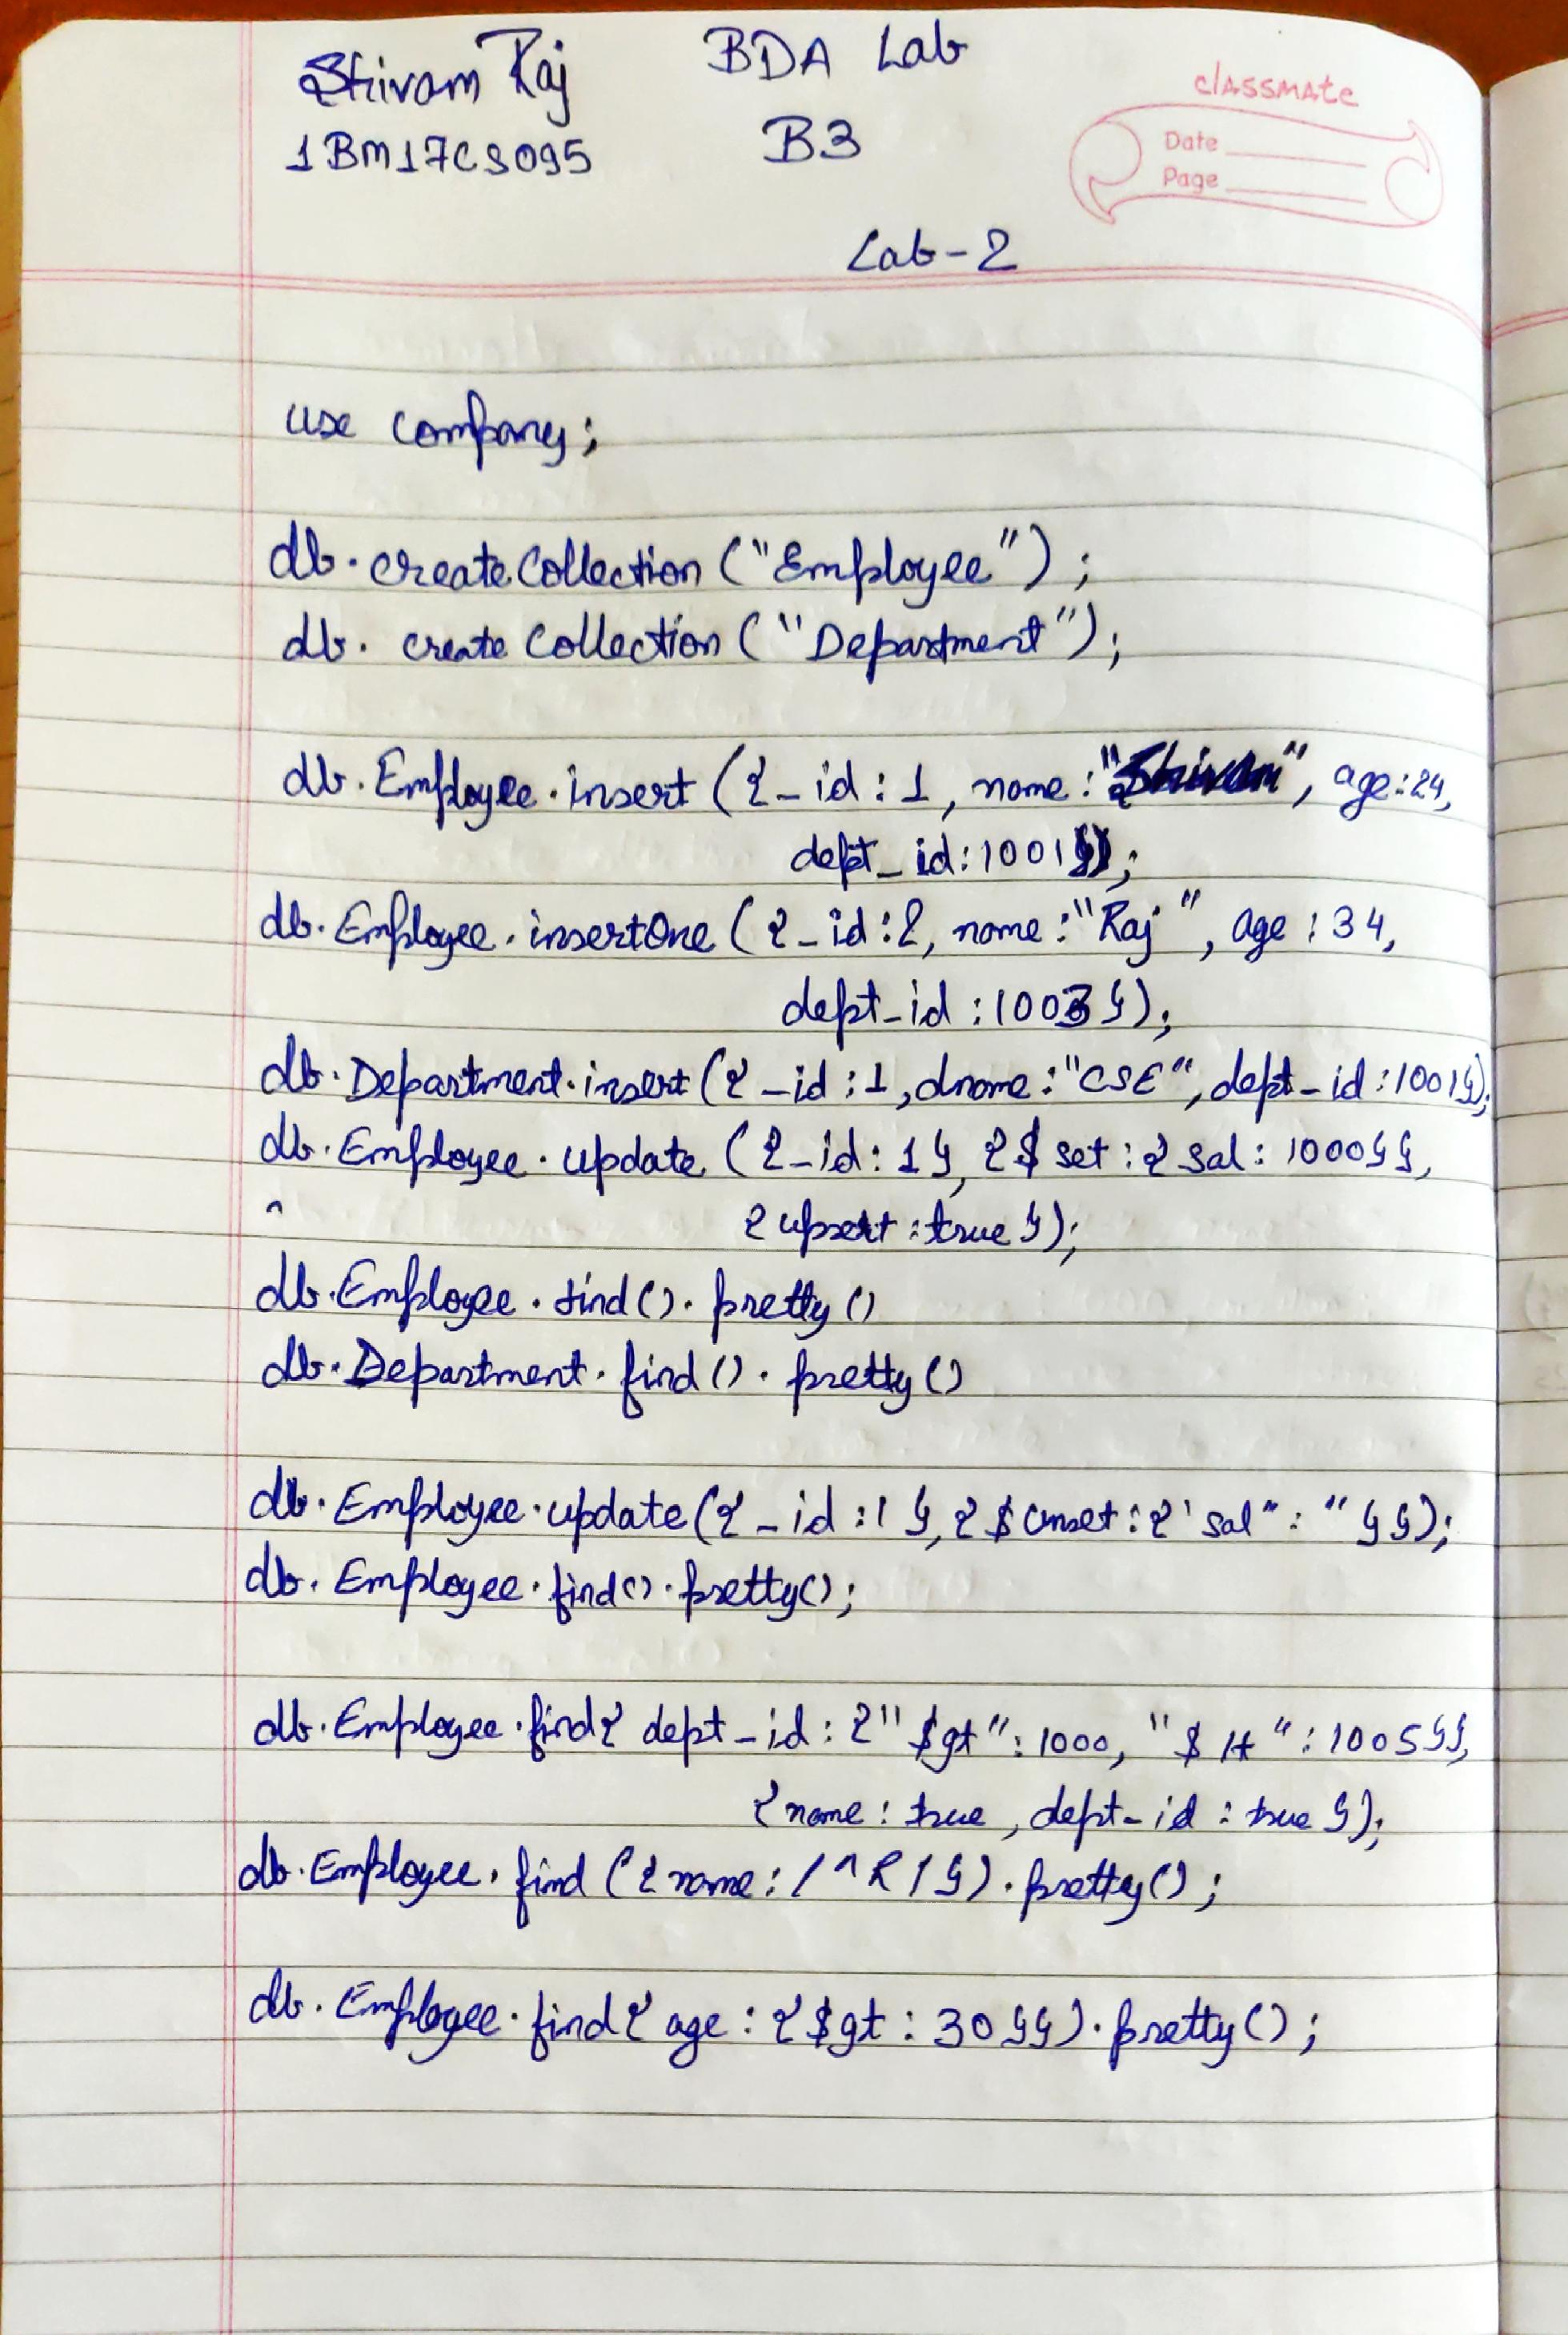 Shivam Raj BDA Lab
1BM17CS095 B3
classmate
Date
Page
Lab-2
use company;
db.createCollection("Employee");
db.createCollection("Department");
db.Employee.insert({_id:1, name:"Shivam", age:24,
dept_id:1001});
db.Employee.insertOne({_id:2, name:"Raj", age:34,
dept_id:1003});
db.Department.insert({_id:1, dname:"CSE", dept_id:1001});
db.Employee.update({_id:1}, {$set:{sal:1000}},
{upsert:true});
db.Employee.find().pretty()
db.Department.find().pretty()
db.Employee.update({_id:1}, {$unset:{'sal":"}});
db.Employee.find().pretty();
db.Employee.find{dept_id:{"$gt":1000, "$lt":1005}},
{name:true, dept_id:true});
db.Employee.find({name:/^R/}).pretty();
db.Employee.find{age:{$gt:30}}).pretty();